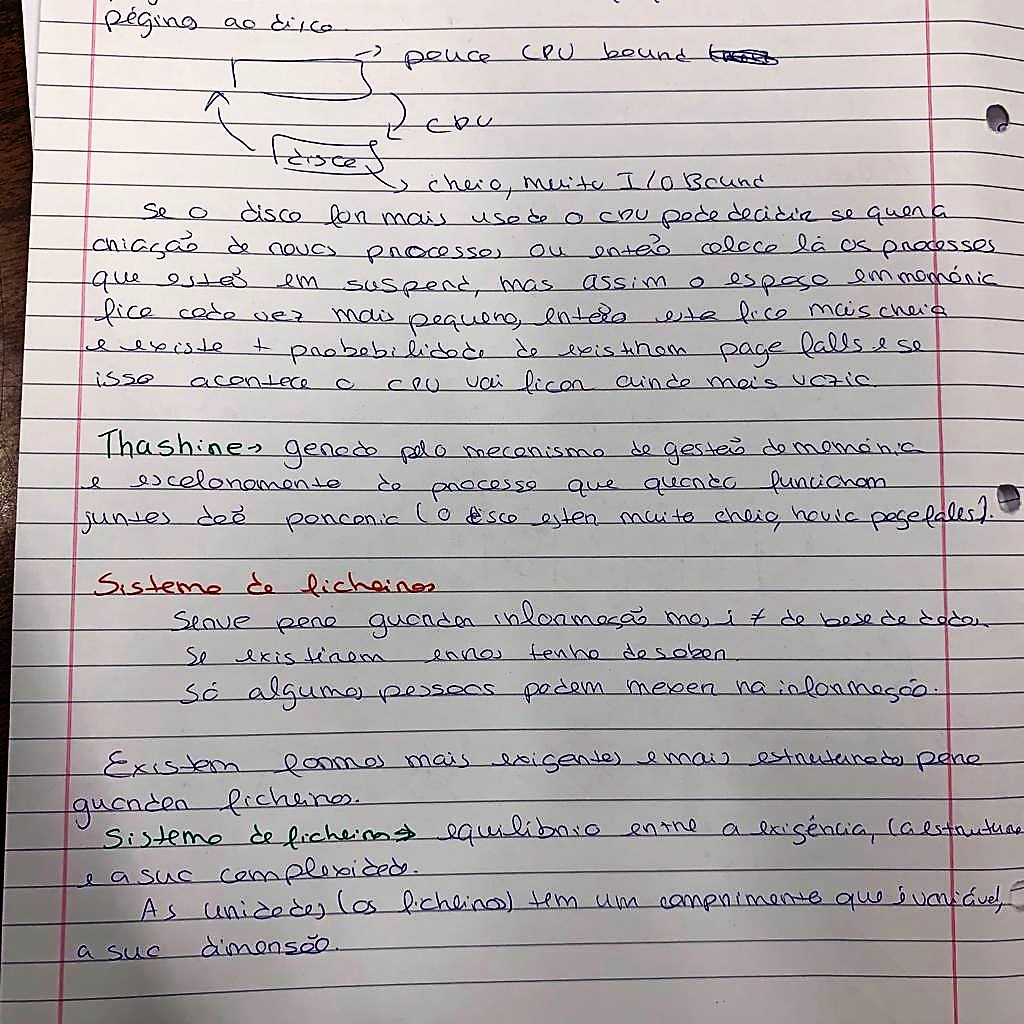 página ao disco.
→ pouco CPU bound
CPU
disco
→ cheio, muito I/O Bound
Se o disco for mais usado o CPU pode decidir se quer a
criação de novos processos, ou então coloca lá os processos
que estão em suspend, mas assim o espaço em memória
fica cada vez mais pequeno, então esta fica mais cheia
e existe + probabilidade de existirem page falls e se
isso acontece o CPU vai ficar ainda mais vazio.
Thashine → gerado pelo mecanismo de gestão de memória
e escalonamento de processo que quando funcionam
juntos dão porcaria (o disco está muito cheio, havia page fales).
Sistema de ficheiros
Serve para guardar informação mas é ≠ de base de dados.
Se existirem erros tenho de saber.
Só algumas pessoas podem mexer na informação.
Existem formas mais exigentes e mais estruturadas para
guardar ficheiros.
Sistema de ficheiros → equilíbrio entre a exigência, (a estrutura
e a sua complexidade.
As unidades, (os ficheiros) tem um comprimento que é variável,
a sua dimensão.